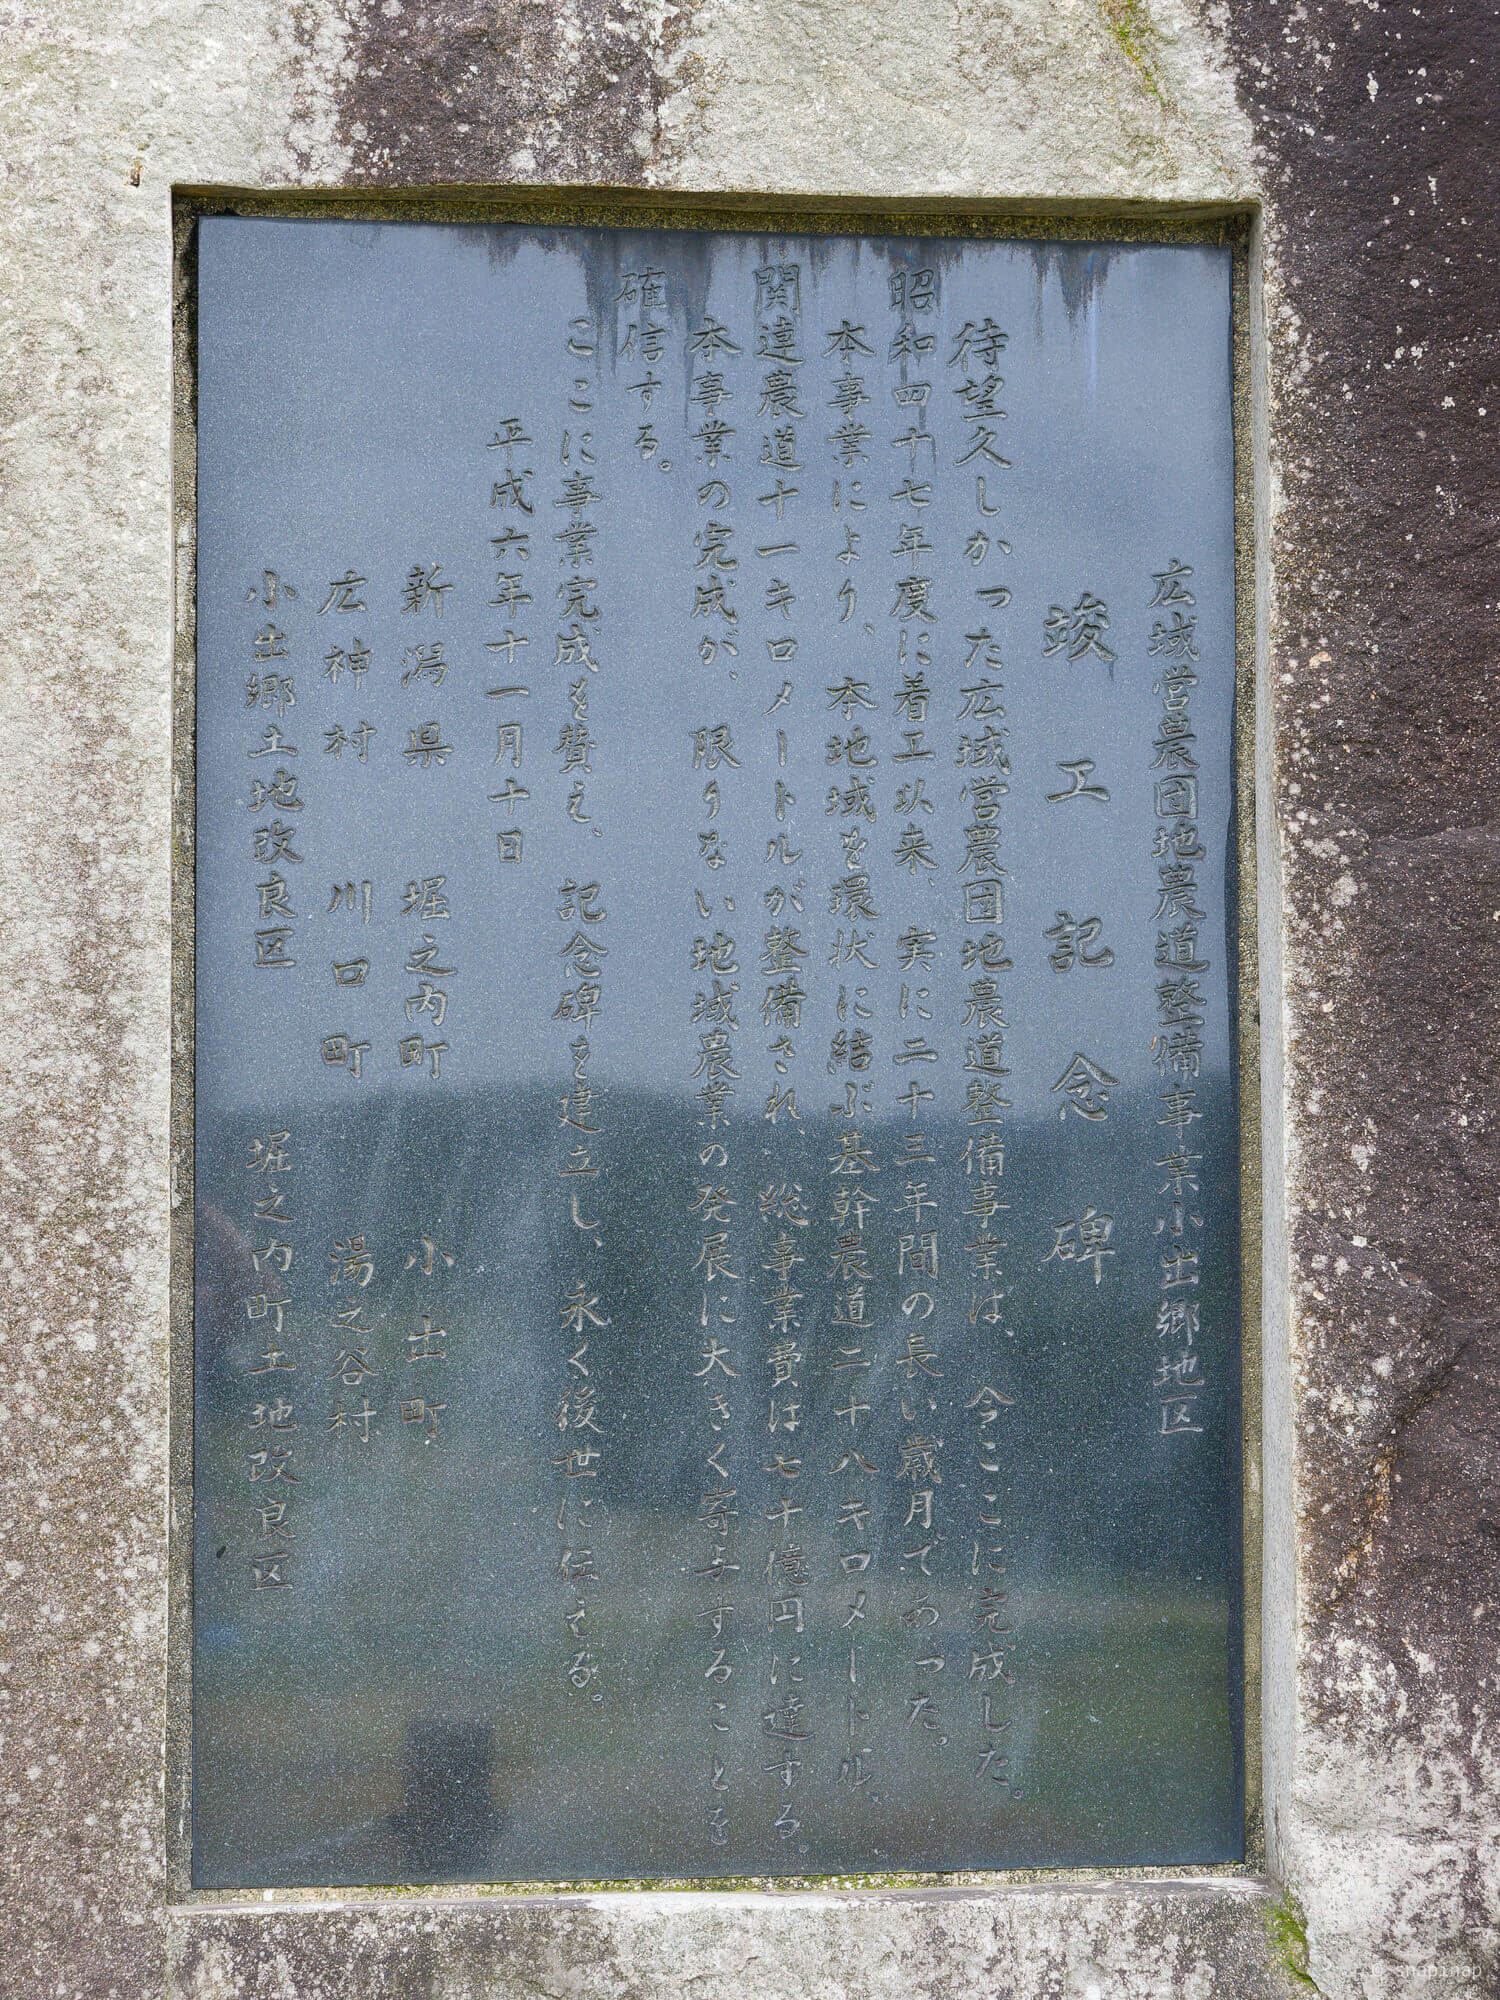 広域営農団地農道整備事業小出郷地区
竣工記念碑
待望久しかった広域営農団地農道整備事業は、今ここに完成した。
昭和四十七年度に着工以来、実に二十三年間の長い歳月であった。
本事業により、本地域を環状に結ぶ基幹農道二十八キロメートル、
関連農道十一キロメートルが整備され、総事業費は七十億円に達する。
本事業の完成が、限りない地域農業の発展に大きく寄与することを
確信する。
ここに事業完成を賛え、記念碑を建立し、永く後世に伝える。
平成六年十一月十日
新潟県 堀之内町 小出町
広神村 川口町 湯之谷村
小出郷土地改良区 堀之内町土地改良区
© snapinap